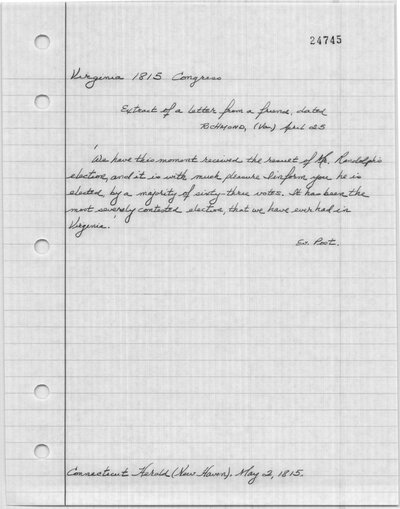 24745
Virginia 1815 Congress
Extract of a letter from a friend, dated
RICHMOND, (Van) April 25
'We have this moment received the result of Mr. Randolph's
election, and it is with much pleasure I inform you he is
elected by a majority of sixty-three votes. It has been the
most severely contested election, that we have ever had in
Virginia.'
Ev. Post.
Connecticut Herald (New Haven). May 2, 1815.